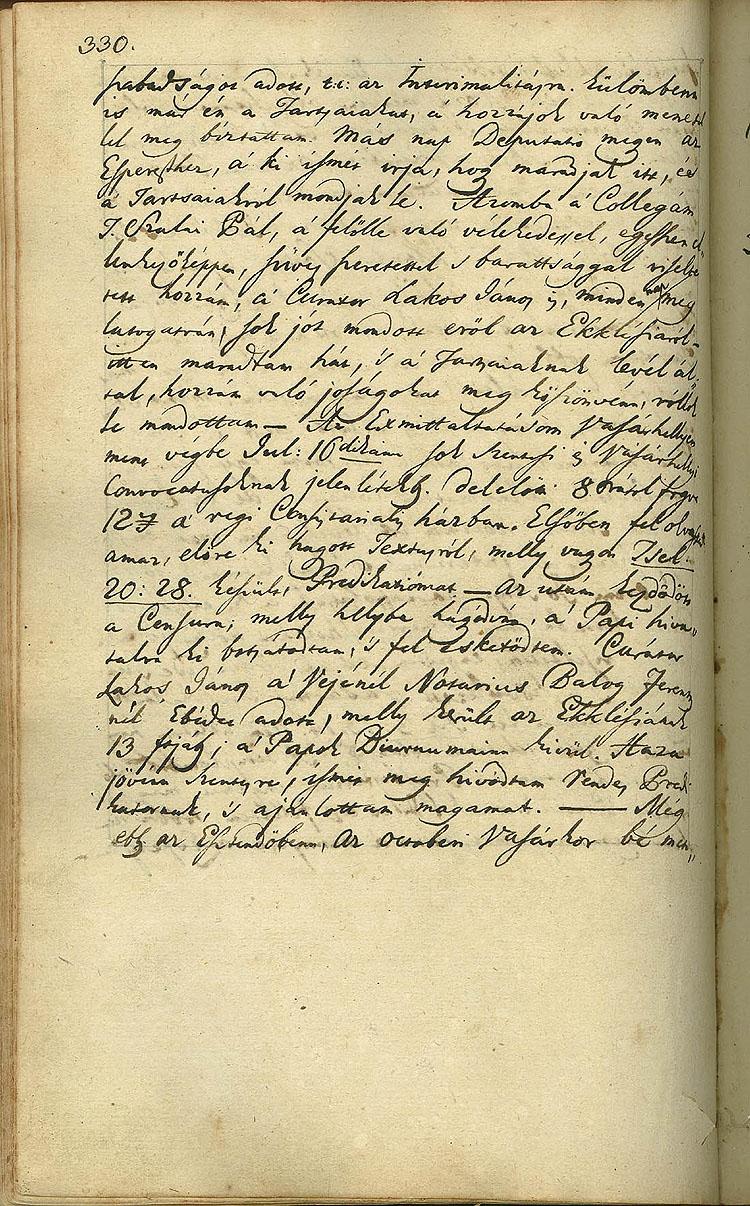 330.
szabadságot adott, t.i: az Interimalitásra. Külömbenn
is már én a Tartsaiakat, a hozzájok való menetel
lel meg bíztattam. Mas nap Deputatio megen az
Esperesthez, á ki ismét irja, hogy maradjak itt, és
á Tartsaiakról mondjak le. Azomba á Collegám
T. Szalai Pál, á felölle való vélekedessel,
szives szeretettel s barattsággal viseltet
tett hozzám, á Curator Lakos János is, minden meg
latogatván, sok jót mondott eröl az Ekklésiaról -
itten maradtam hát, 's á Tartsaiaknak levél ál
tal, hozzám való joságokat meg köszönvén, rollok
le mondottam — Az Exmittáltatásom Vásárhellyen
ment végbe Jul: 16dikán sok Szentesi és Vásárhellyi
Convocatusoknak jelenlétekb. delelött 8 órától fogva
12ig á regi Consistorialis házban. Elsöben fel olvastat
amaz, elöre ki hagott Textusról, melly vagon Tsel:
20: 28. készült Predikátziómat — az után kezdödött
a Censura; melly helybe hagódván, á Papi hiva„
talra ki botsátódtam, 's fel eskettödtem. Curator
Lakos János á Vejénél Notarius Balog Ferentz
nél Ebédet adott, melly került az Ekklésiának
13 ftjáb; á Papok Diurnumainn kivül. Haza
jövén Szentesre, ismét meg hivódtam Rendes Predi
kátornak, 's ajánlottam magamat. —— Még
ebb az Esztendöbenn, az octoberi Vásárkor bé men„